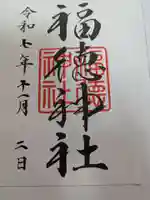 福徳神社
令和七年十一月二日